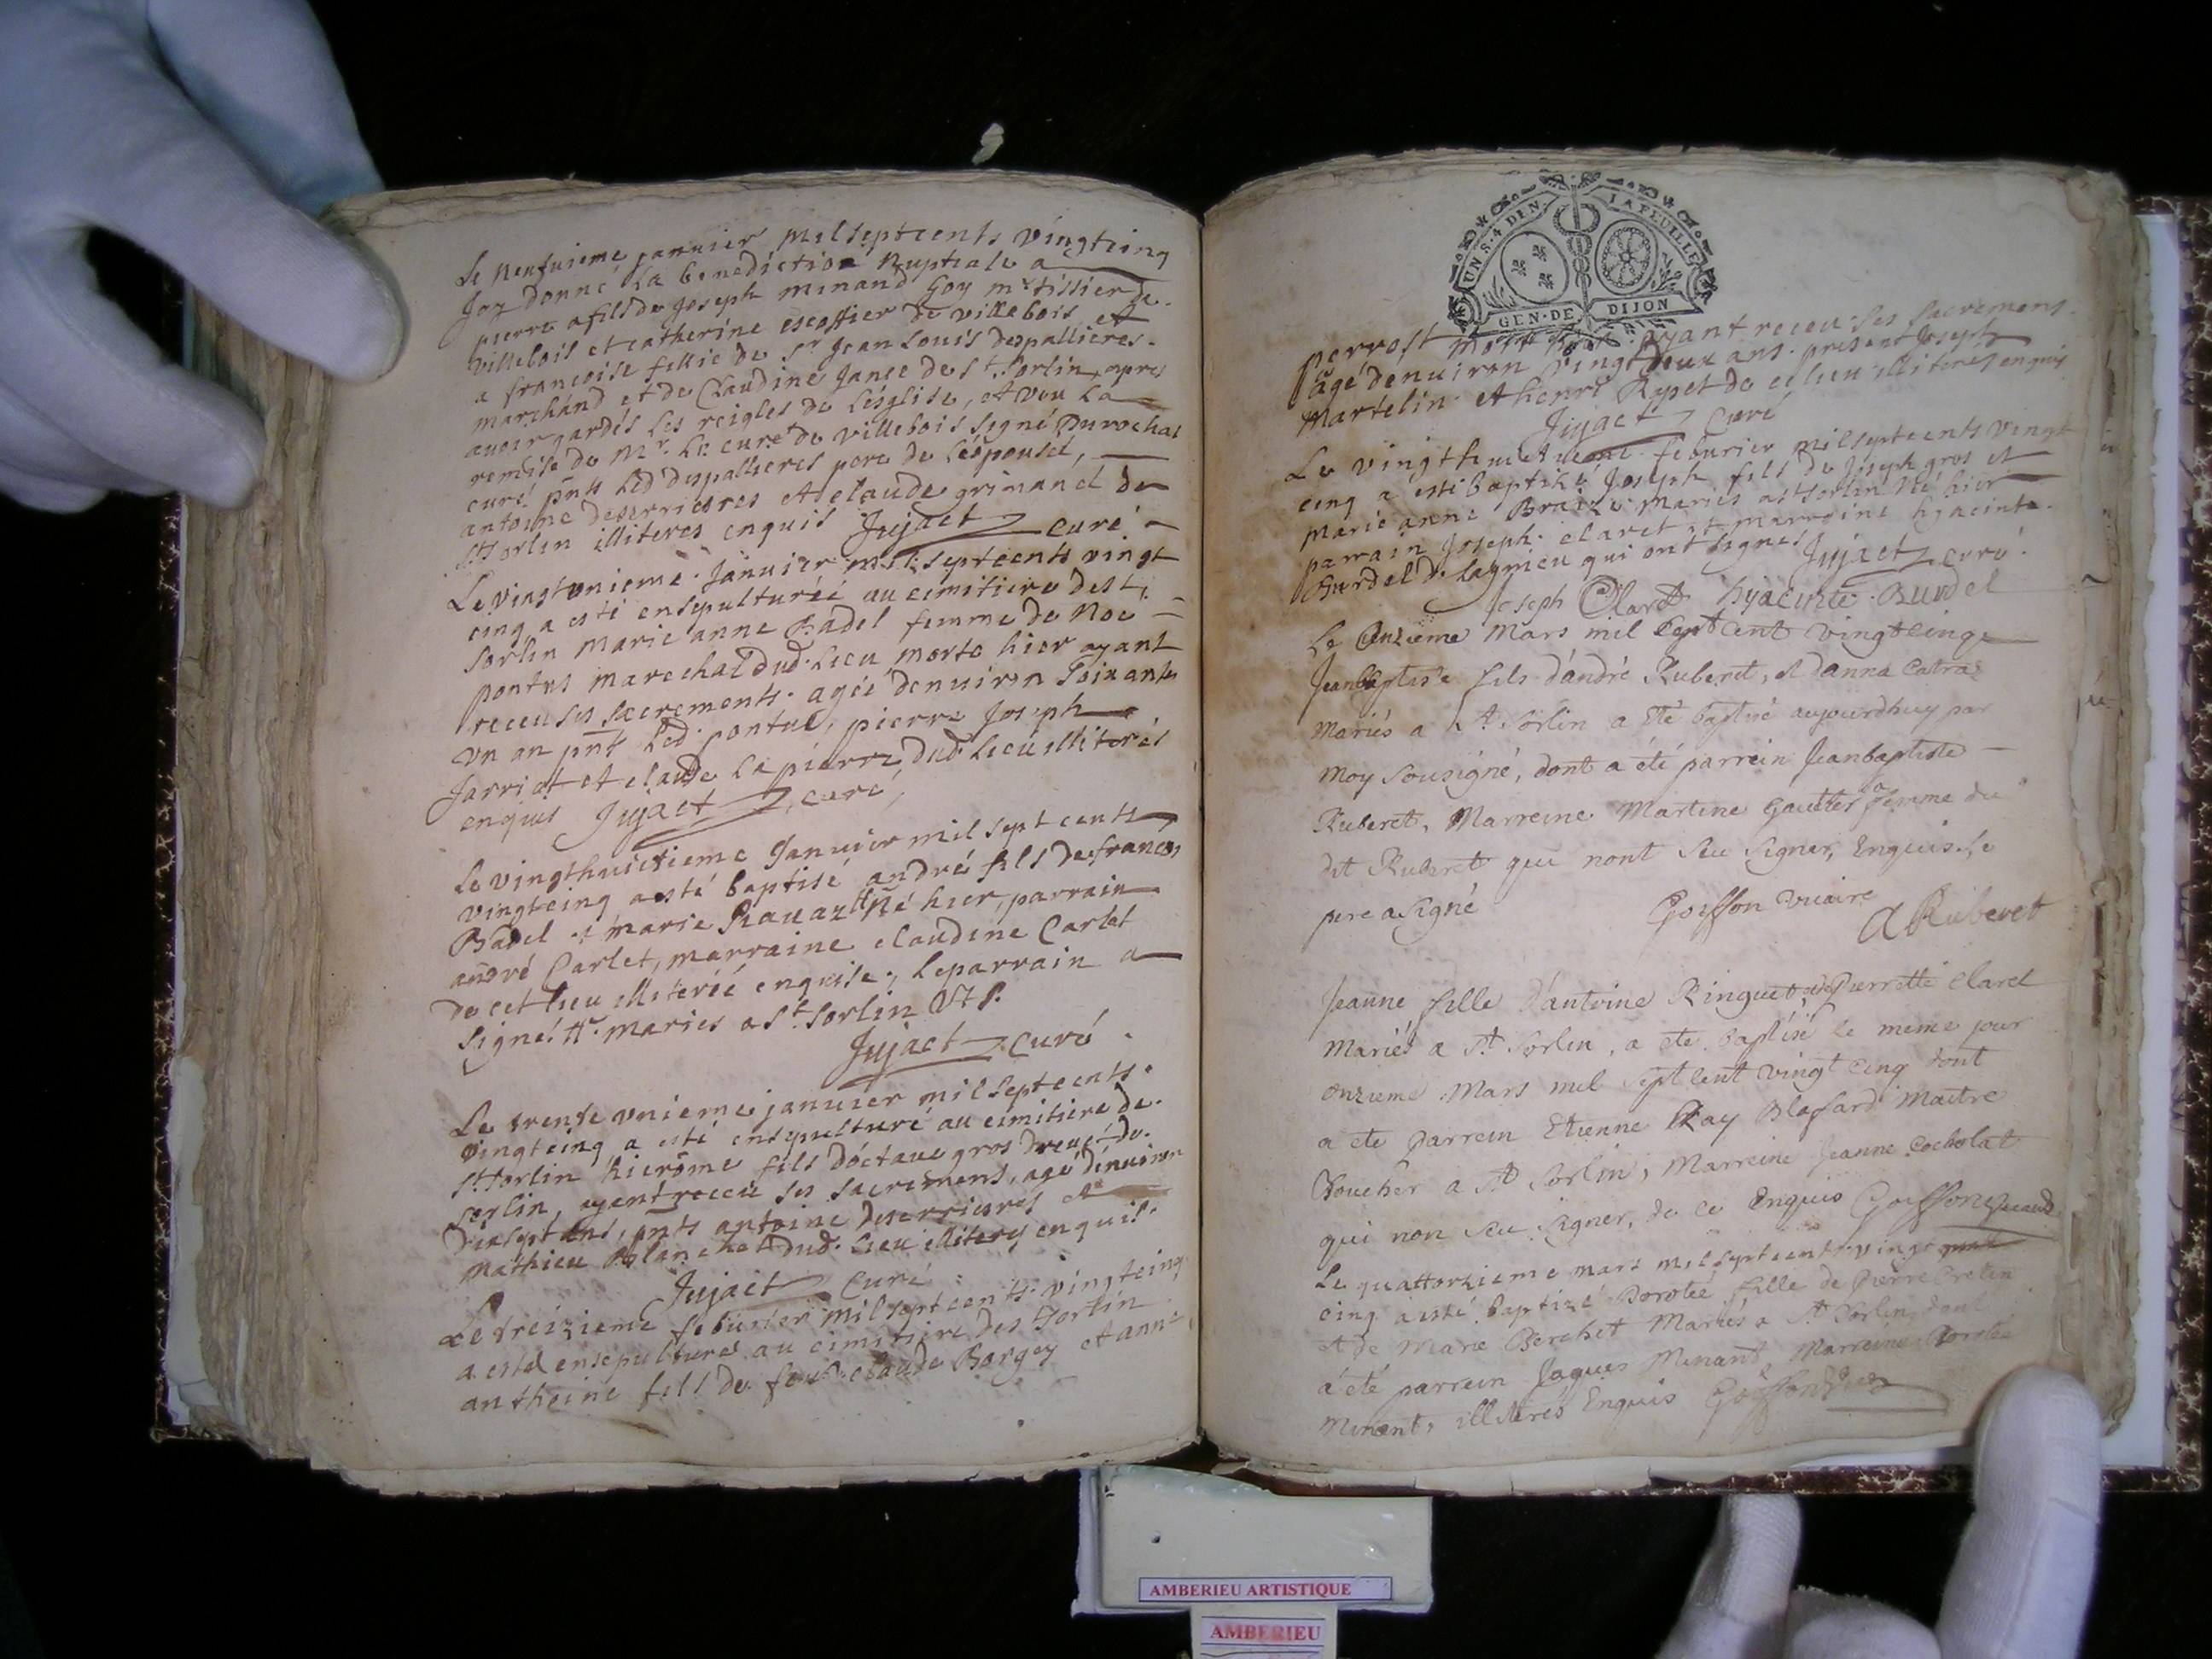 Le neufuieme januier milseptcents vingtcinq
Jay donné La benediction Nuptiale a
pierre a fils de Joseph minand Goy mr tissier de
villebois et catherine escoffier de villebois et
a francoise fillie de Sr Jean Louis despallieres
marchand et de Claudine Janee de St Sorlin, apres
auoir gardés Les reigles de L'eglise, et veu La
remise de Mr. Le curé de villebois signé Durochat
curé pnts Led despallieres pere de L'epouse,
antoine deserrieres et claude grimand de
St Sorlin illiteres enquis Jujact curé
Le vingtunieme Januier milseptcents vingt
cinq a esté ensepulturée au cimitiere de St
Sorlin marie anne Badel femme de Noe
pontus marechal dud. Lieu morte hier ayant
receu ses sacrements agée denuiron soixante
vn an pnt Led pontus, pierre Joseph
Jarriat et claude La pierre dud. Lieu illiterés
enquis Jujact curé
Le vingthuictieme Januier mil sept cents
vingtcinq a esté baptisé andré fils de francois
Badel et marie Rauaz tt né hier, parrain
andré Carlet, marraine claudine Carlet
de cet lieu illiterée enquise, le parrain a
signé. tt. mariés a St Sorlin
Jujact curé
Le trente vnieme januier milseptcents
vingtcinq a esté ensepulturé au cimitiere de
St Sorlin hierôme fils d'octaue gros dreué de
Sorlin, ayant receu ses sacremens, agé denuiron
dixsept ans, pnts antoine deserrieres et
mathieu Blanchet dud. Lieu illiterés enquis
Jujact curé
Le treizieme feburier milseptcents vingtcinq
a esté ensepulturé au cimitiere de St Sorlin
antheine fils de feu claude Bargey et anne
UN. S. 4 DEN. LA FEUILLE
GEN. DE DIJON
perrost mort hier ayant receu ses sacremens
agé denuiron vingtdeux ans present Joseph
Martelin et henri Rapet de ce lieu illiterés enquis
Jujact curé
Le vingthuictieme feburier milseptcents vingt
cinq a esté baptisé Joseph fils de Joseph gros et
marie anne mariés a St Sorlin né hier
parrain Joseph claret et marraine hyacinte
Burdel de Lagnieu qui ont signés Jujact curé
Joseph Claret hyacinte Burdel
Le Onzieme Mars mil Sept Cent vingtcinq
Jeanbaptiste fils d'andré Ruberet, et d'anna Catraz
Mariés a St Sorlin a été baptisé aujourdhuy par
moy sousigné, dont a été parrein Jeanbaptiste
Ruberet, Marreine Martine Gautier femme du
dit Ruberet qui nont seu signer, Enquis. Le
pere a signé Goiffon vicaire
A Ruberet
Jeanne fille D'antoine Ringuet, et de Pierrette Claret
Mariés a St Sorlin, a ete baptisé le meme jour
onzieme Mars mil sept cent vingt cinq dont
a ete parrein Etienne Ray Blassard Maitre
Boucher a St Sorlin, Marreine Jeanne Cocholat
qui non seu signer, de ce Enquis Goiffon vicaire
Le quattorzieme mars milseptcents vingt
cinq a esté baptizé Dorotée fille de Pierre Cretin
et de Marie Berchet Mariés a St Sorlin dont
a été parrein Jaques Minant Marreine Dorotée
Minant, illiterés Enquis Goiffon
AMBERIEU ARTISTIQUE
AMBERIEU